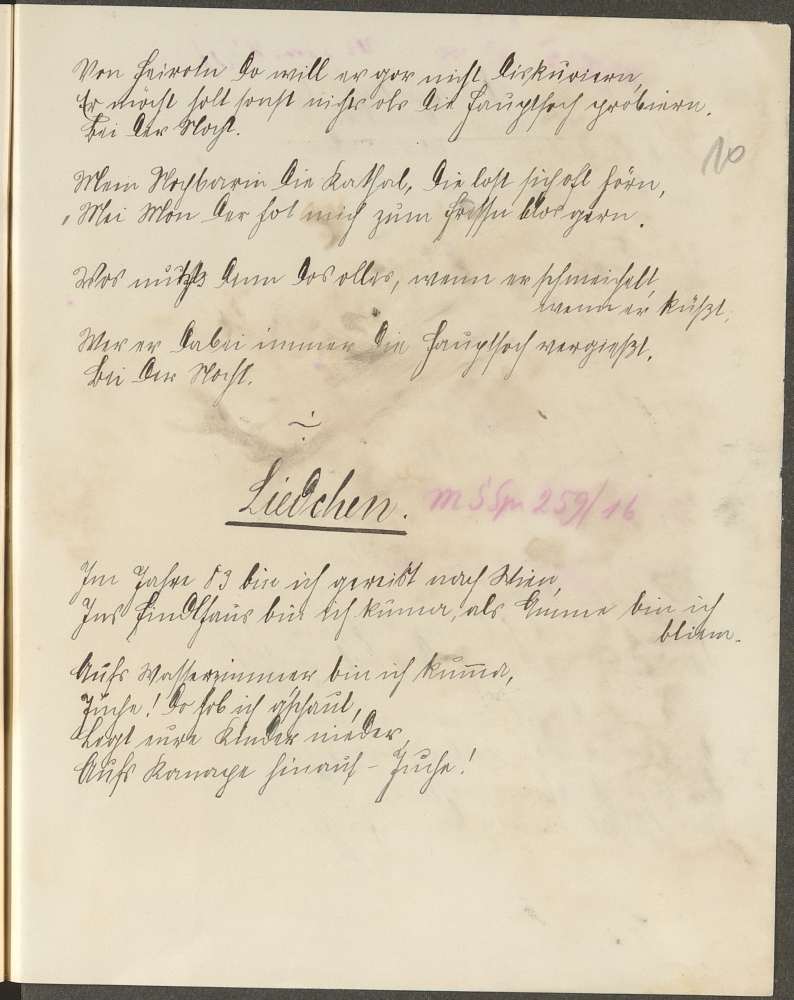 Von Heiroln do will er gor nicht diskuriern,
Er möcht holt sonst nichts ols die Hauptsoch probiern.
Bei der Nocht.
10
Mein Nochbarin die Kathal, die lost sich oft hörn,
"Mei Mon der hot mich zum Fressn blos gern.
Wos nutzts denn dos olles, wenn er schmeichelt,
wenn er küßt,
Wer er dabei immer die Hauptsoch vergießt.
Bei der Nocht.
Liedchen. M S Spr 259/16
Im Jahre 83 bin ich gereist nach Wien,
Ins Findlhaus bin ich kumma, als Amme bin ich
bliem.
Aufs Wasserzimmer bin ich kumma,
Juche! Do hob ich g'schaut,
Legt eure Kinder nieder,
Aufs Kanape hinauf - Juche!